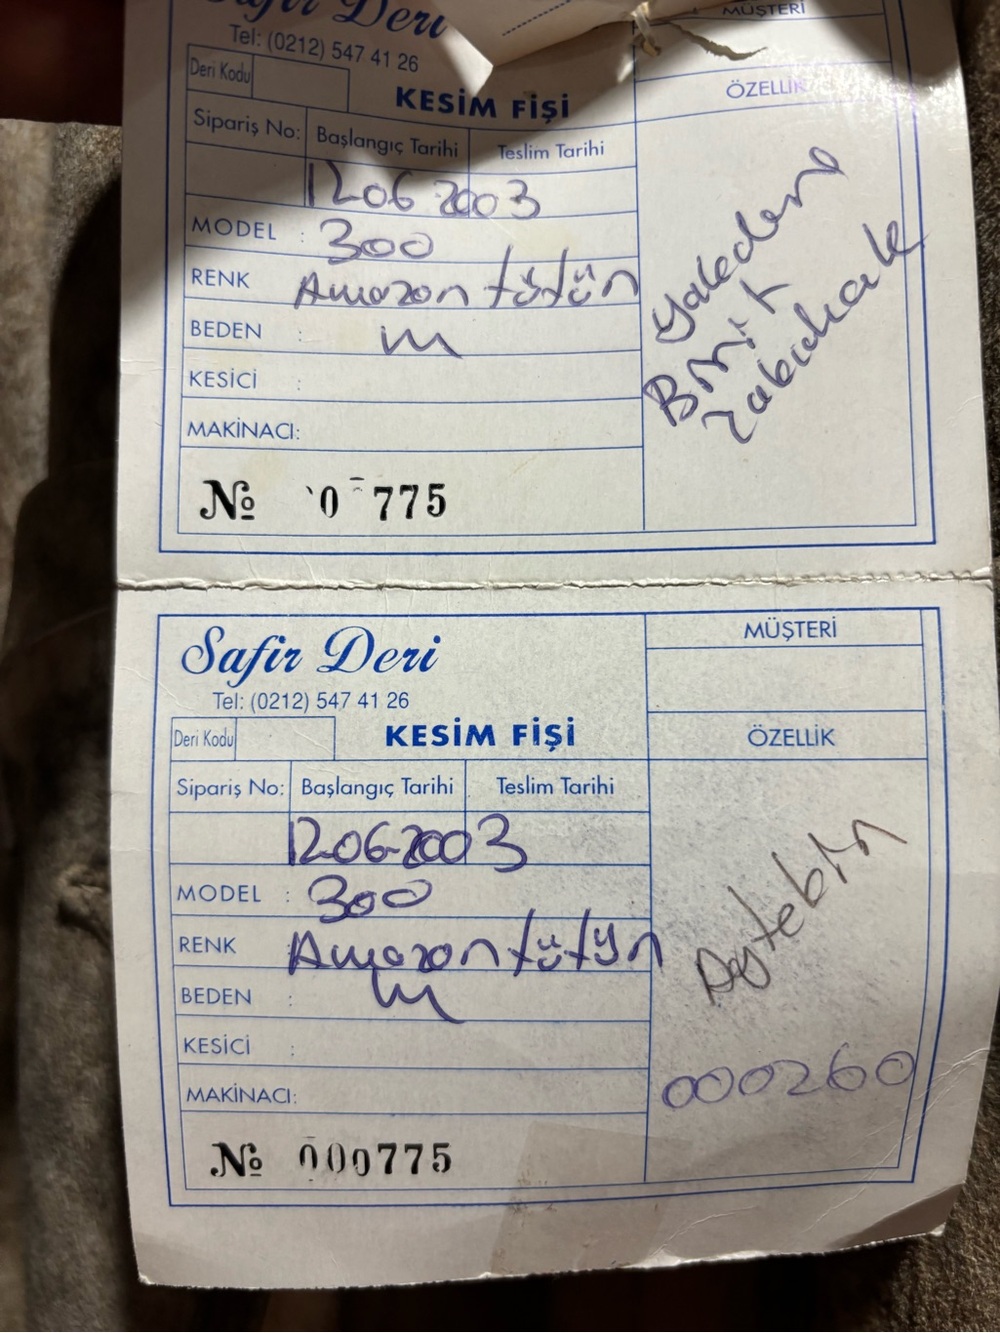 Safir Deri
MÜŞTERİ
Tel: (0212) 547 41 26
Deri Kodu
KESİM FİŞİ
ÖZELLİK
Sipariş No: Başlangıç Tarihi Teslim Tarihi
12 06 2003
MODEL : 300
RENK Amazon tütün
BEDEN : M
KESİCİ :
MAKİNACI:
Yakadan
№ 0 775
Safir Deri
MÜŞTERİ
Tel: (0212) 547 41 26
Deri Kodu
KESİM FİŞİ
ÖZELLİK
Sipariş No: Başlangıç Tarihi Teslim Tarihi
12 06 2003
MODEL : 300
RENK Amazon tütün
BEDEN : M
KESİCİ :
MAKİNACI:
000260
№ 000775